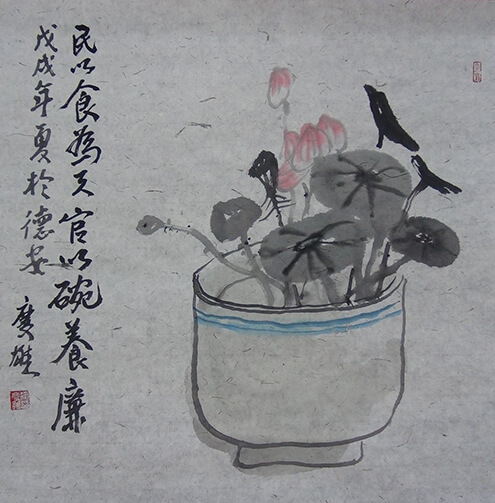 民以食為天官以碗養廉
戊戌年夏於德安
廣雄